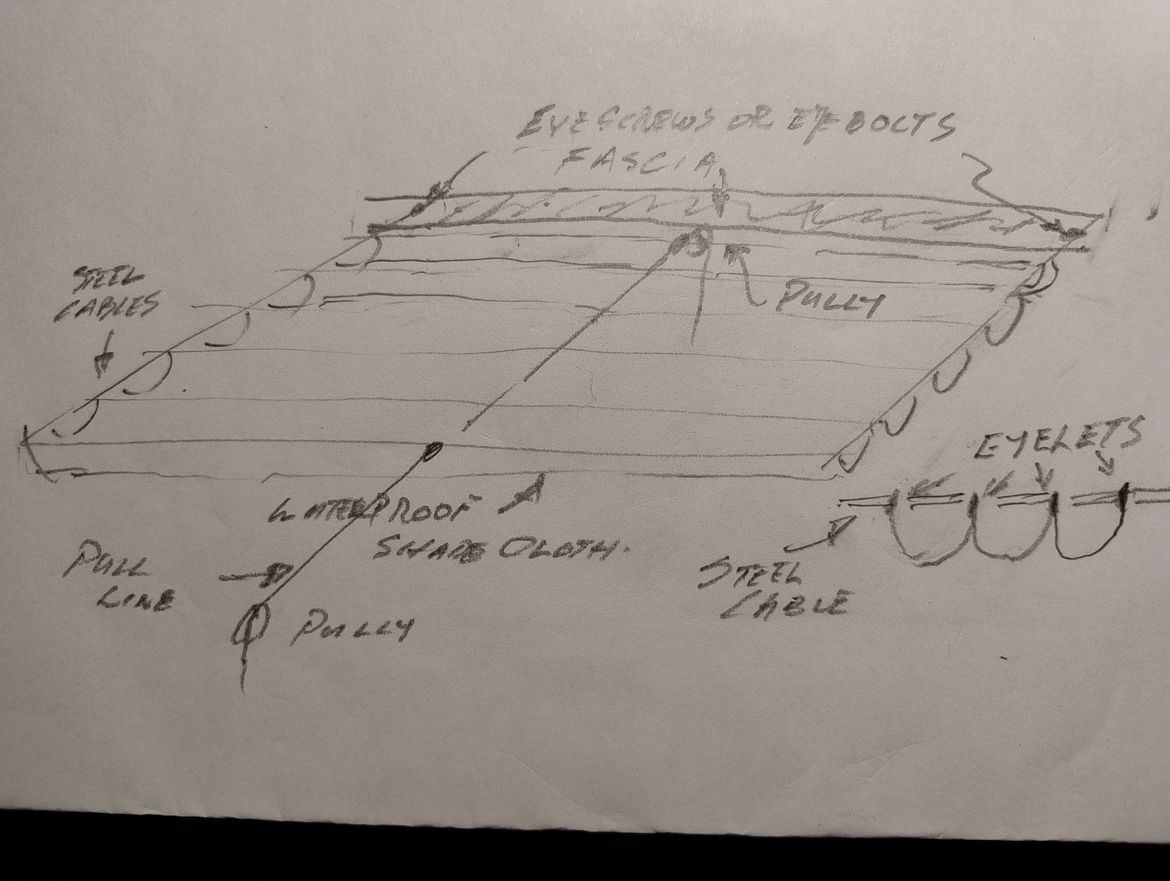 EYESCREWS OR EYEBOLTS
FASCIA
STEEL
CABLES
PULLY
EYELETS
WATERPROOF
SHADE CLOTH.
PULL
LINE
PULLY
STEEL
CABLE